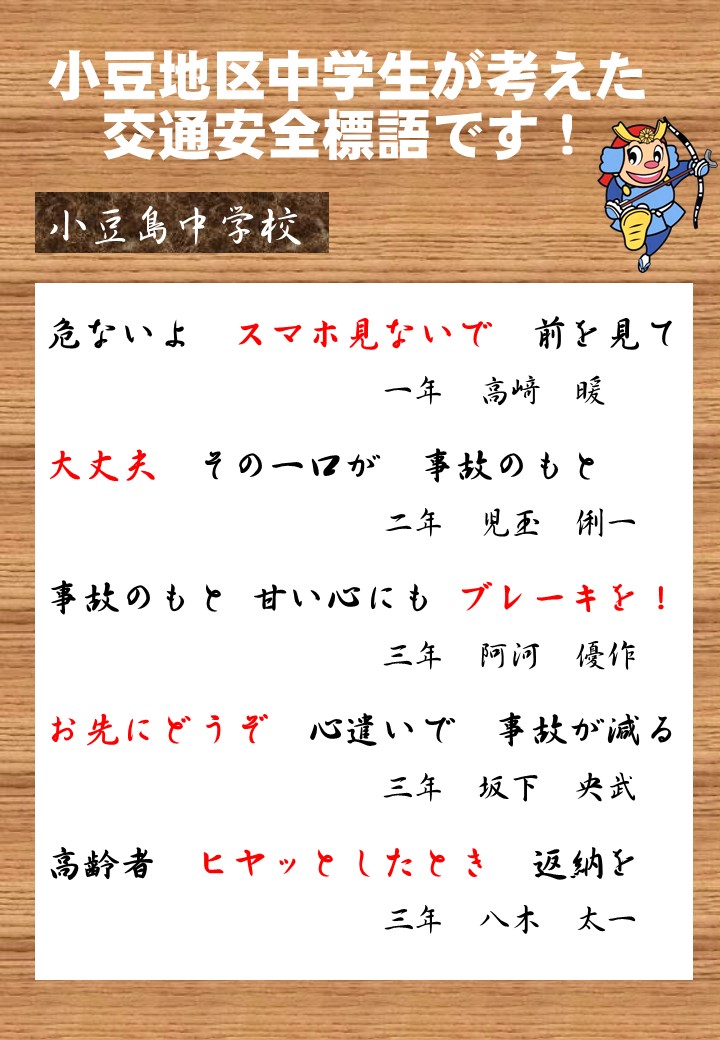 小豆地区中学生が考えた
交通安全標語です！
小豆島中学校
危ないよ　スマホ見ないで　前を見て
一年　高﨑　暖
大丈夫　その一口が　事故のもと
二年　児玉　俐一
事故のもと　甘い心にも　ブレーキを！
三年　阿河　優作
お先にどうぞ　心遣いで　事故が減る
三年　坂下　央武
高齢者　ヒヤッとしたとき　返納を
三年　八木　太一